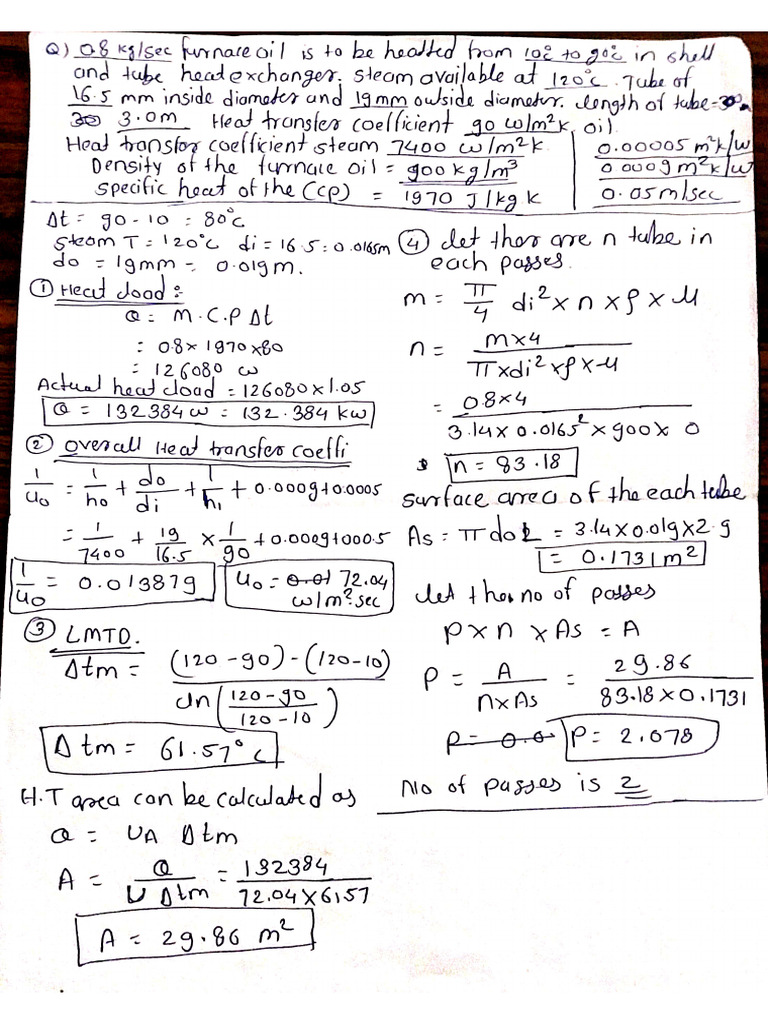 Q) 0.8 kg/sec furnace oil is to be heatted from 10°c to 90°c in shell
and tube heat exchanger. steam available at 120°c. Tube of
16.5 mm inside diameter and 19mm outside diameter. length of tube =
3.0m Heat transfer coefficient 90 w/m²k oil.
Heat transfer coefficient steam 7400 w/m²k.
Density of the furnace oil = 900 kg/m³
specific heat of the (cp) = 1970 J/kg k
0.00005 m²k/w
0.0009 m²k/w
0.05 m/sec
Δt = 90 - 10 = 80°c
steam T = 120°c di = 16.5 = 0.0165m
do = 19mm = 0.019m.
① Heat load :-
Q = M.C.P Δt
= 0.8 x 1970 x 80
= 126080 w
Actual heat load = 126080 x 1.05
Q = 132384 w = 132.384 kw
② overall Heat transfer coeffi
1/uo = 1/ho + do/di + 1/hi + 0.0009+0.0005
= 1/7400 + 19/16.5 x 1/90 + 0.0009+000.5
1/uo = 0.013879
uo = 0.01 72.04 w/m² sec
③ LMTD.
Δtm = (120-90)-(120-10) / ln(120-90/120-10)
Δtm = 61.57°c
H.T area can be calculated as
Q = UA Δtm
A = Q/U Δtm = 132384/72.04x6157
A = 29.86 m²
④ let ther are n tube in
each passes.
m = π/4 di² x n x ρ x u
n = mx4/πxdi²xρxu
= 0.8x4/3.14x0.0165²x900x0
n = 83.18
surface area of the each tube
As = π do L = 3.14x0.019x2.9
= 0.1731 m²
let the no of passes
p x n x As = A
P = A/nxAs = 29.86/83.18x0.1731
P = 0.0 P = 2.078
No of passes is 2